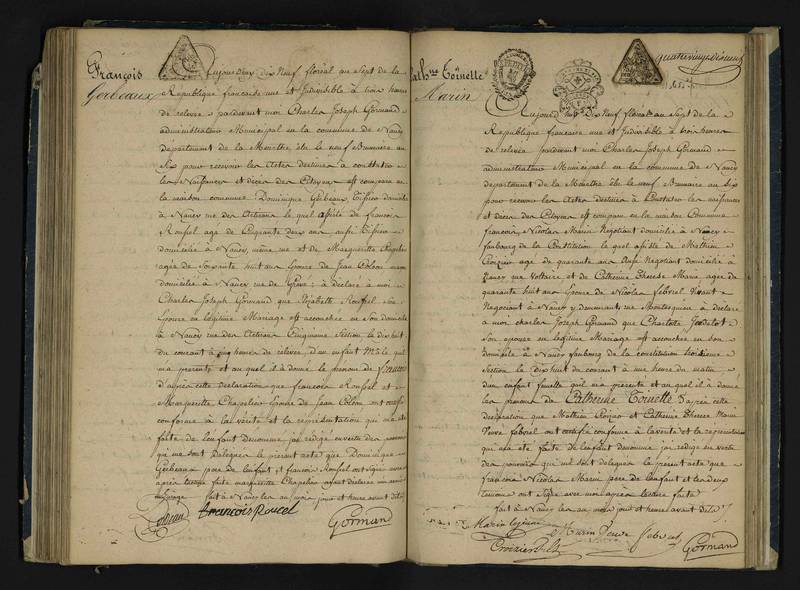 François
Gerbeaux
aujourdhuy dix Neuf floréal an Sept de la
Republique francaise une et Indivisible à trois heures
de relevée pardevant moi Charles Joseph Gormand
administrateur Municipal en la commune de Nancy
departement de la Meurthe élu le neuf Brumaire an
Six pour recevoir les actes destinés à constater
les Naissances et décès des Citoyens est comparu en
la maison commune Dominique Gerbeaux domicilié
à Nancy rue des lequel assisté de francois
Roussel age de Cinquante deux ans aussi
domicilié à Nancy, même rue et de Marguerite Chapelier
agée de Soixante huit ans Epouse de Jean Colom
domicilié à Nancy rue de Grève : à déclaré à moi
Charles Joseph Gormand que Elizabeth Roussel Son
Epouse en legitime Mariage est accouchée en son domicile
à Nancy rue des Cinquieme Section le dix huit
du courant à heures de relevée, d'un enfant Mâle quil
ma présenté et au quel il a donné le prenom de francois
d'après cette declaration que francois Roussel et
Marguerite Chapelier Epouse de Jean Colom ont certifié
conforme à la vérité et la représentation qui ma été
faite de l'enfant denommé jai rédigé en vertu des pouvoirs
qui me sont délégués le présent acte que Dominique
Gerbeaux pere de l'enfant et francois Roussel ont signé avec
après lecture faite marguerite Chapelier ayant declaré ne
fait à Nancy les an mois jour et heure avant dits
francois roucel
Gormand
Cath.ne Toinette
Marin
quatre vingt dix neuf
aujourd'huy dix Neuf floréal an Sept de la
République francaise une et Indivisible à trois heures
de relevée pardevant moi Charles Joseph Gormand
administrateur Municipal en la commune de Nancy
departement de la Meurthe élu le neuf Brumaire an Six
pour recevoir les actes destinés à Constater les naissances
et décès des Citoyens est comparu en la Maison Commune
francois Nicolas Marin Negotiant domicilié à Nancy
faubourg de la Constitution le quel assisté de Mathieu
Croizier age de quarante ans aussi Negotiant domicilié à
Nancy rue Voltaire et de Catherine Therese Marin agee de
quarante huit ans Epouse de Nicolas febvrel vivant
Negociant à Nancy y demeurant, rue Montesquieu à déclaré
à moi charles Joseph Gormand que Charlotte
Son epouse en legitime Mariage est accouchée en son
domicile à Nancy faubourg de la constitution troisieme
Section le dix huit du courant à une heure du matin
d'un enfant femelle quil ma présenté et au quel il a donné
les prenoms de Catherine Toinette d'après cette
declaration que Mathieu Croizier et Catherine Therese Marin
Veuve febvrel ont certifié conforme à la verité et la representation
qui ma été faite de l'enfant denommé jai redigé en vertu
des pouvoirs qui me sont delegués le present acte que
francois Nicolas Marin pere de l'enfant et les deux
temoins ont signé avec moi après lecture faite
fait à Nancy les an mois jour et heure avant dits
Marin
Marin Veuve febvrel
Croizier
Gormand